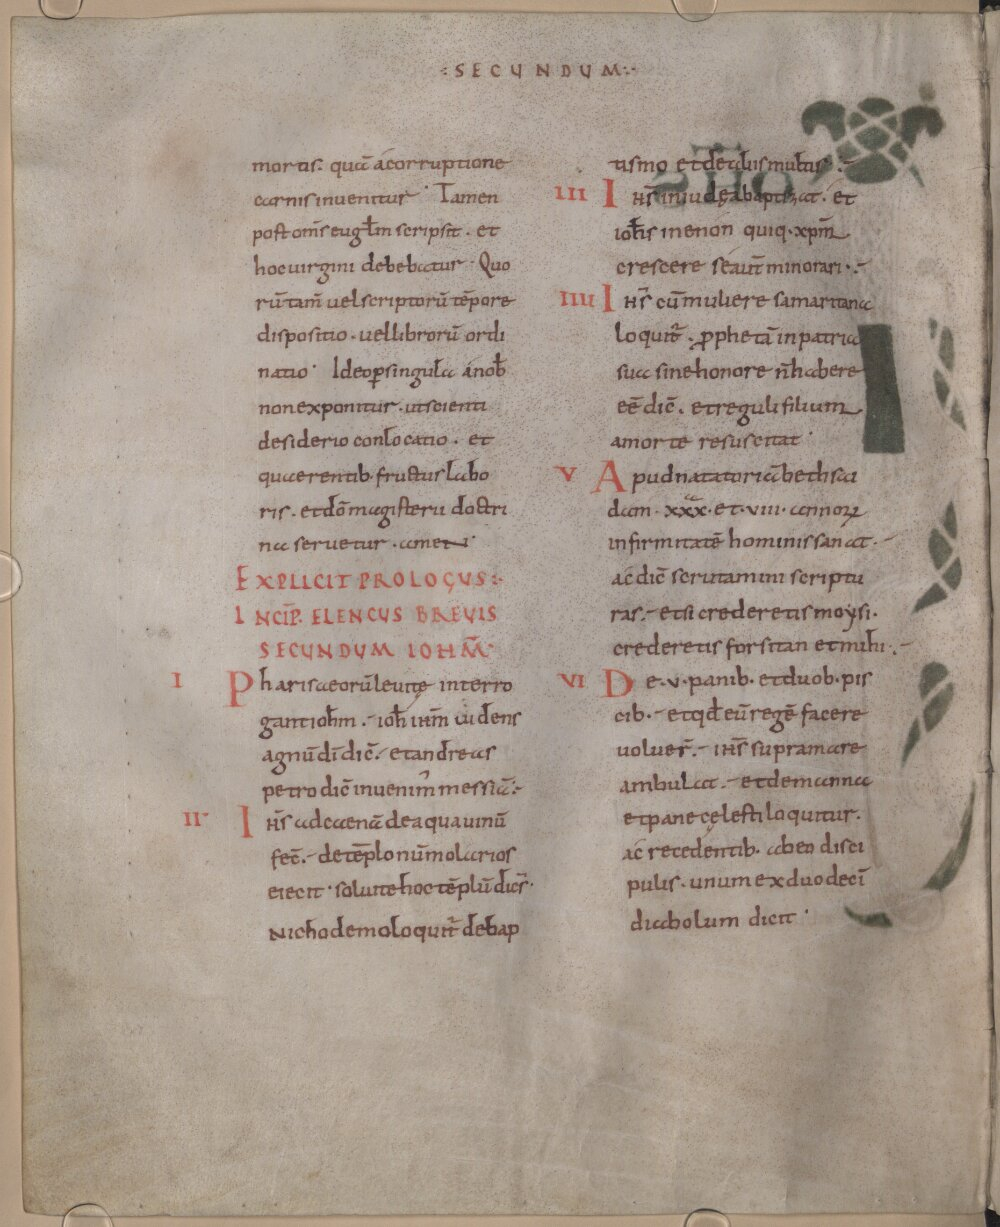 ·:SECUNDUM:·
mortis. quā a corruptione
carnis invenitur· Tamen
post om̄s eug̅lm scripsit. et
hoc virgini debebatur· Quo
rū tam̄ vel scriptorū tēpore
dispositio. vel librorū ordi
natio· Ideo ꝑ singula a nob̄
non exponitur. ut scienti
desiderio conlocatio. et
quaerentib. fructus labo
ris. et dō magisterii doctri
na servetur. amen·
EXPLICIT PROLOGUS:·
INCIP̄. ELENCUS BREVIS
SECUNDUM IOHM̄·
I Pharisaeorū levitę interro
gant ioh̄m.- ioh̄ ih̄m videns
agnū dī dic̄.- et andreas
petro dic̄ invenim̄ messiā:-
II· Ih̄s ad caenā de aqua vinū
fec̄.- de tēplo nūmolarios
eiecit· solvite hoc tēplū dics̄·
Nichodemo loquit̄ de bap
tismo et de aliis multis:-
III Ih̄s in iudęa baptizat. et
ioh̄is in enon quiq. xpm̄
crescere se aut̄ minorari·-
IIII Ih̄s cū muliere samaritana
loquit̄. ꝓphetā in patria
sua sine honore n̄ habere
eē dic̄. et reguli filium
a morte resuscitat·
V Apud natatoriā bethsai
dam. xxx. et. viii. annoꝝ
infirmitatē hominis sanat.-
ac̄ dic̄ scrutamini scriptu
ras.- et si crederetis moysi.
crederetis forsitan et mihi.-
VI De. v. panib. et duob. pis
cib.- et qd̄ eū regē facere
voluer̄.- ih̄s supra mare
ambulat.- et de manna
et pane cęlesti loquitur.
ac̄ recedentib. ab eo disci
pulis. unum ex duodecī
diabolum dicit·